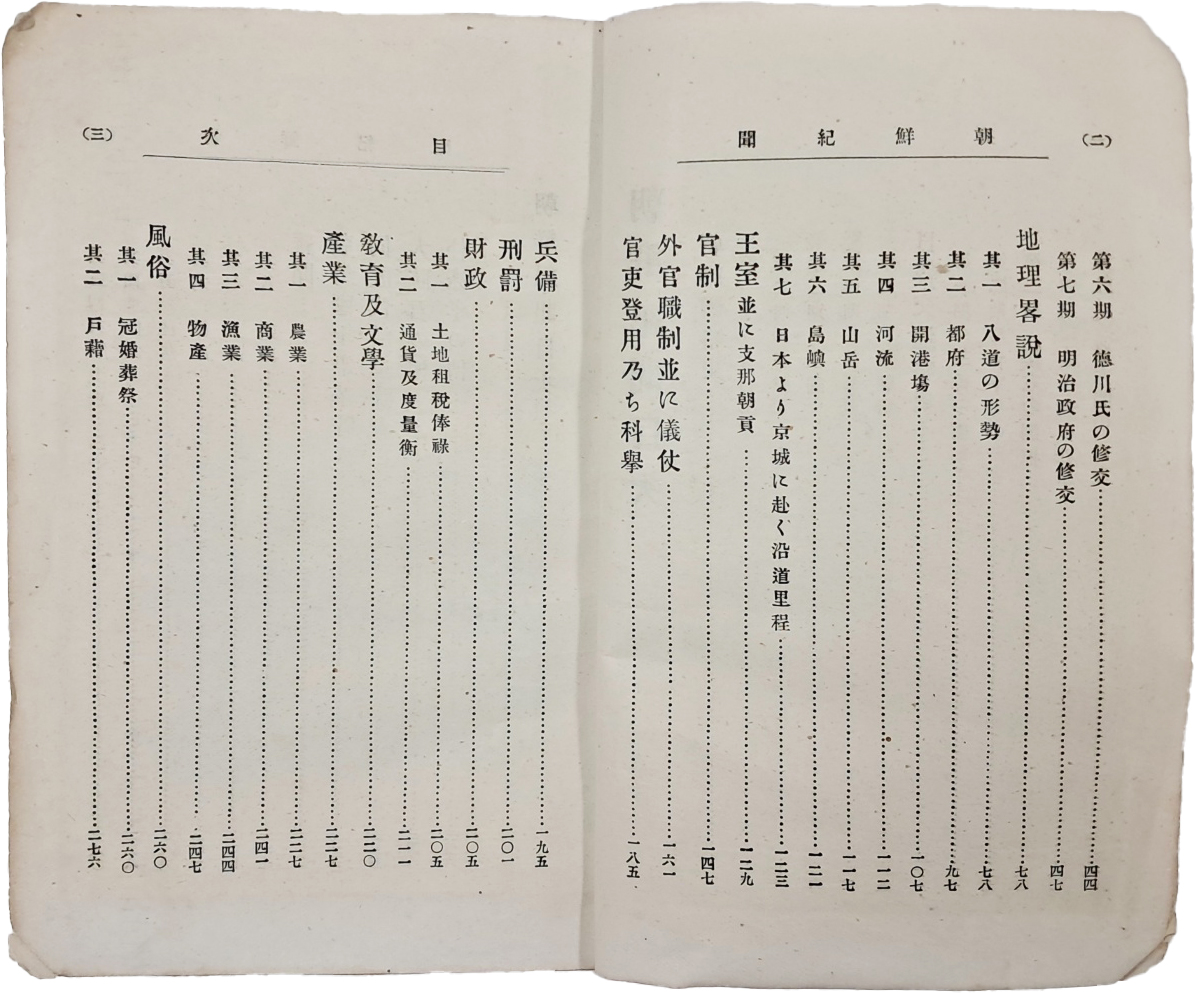 (二)
朝鮮紀聞
第六期　德川氏の修交…四四
第七期　明治政府の修交…四七
地理畧說…七八
其一　八道の形勢…七八
其二　都府…九七
其三　開港塲…一〇七
其四　河流…一一二
其五　山岳…一一七
其六　島嶼…一二一
其七　日本より京城に赴く沿道里程…一二三
王室並に支那朝貢…一二九
官制…一四七
外官職制並に儀仗…一六一
官吏登用乃ち科擧…一八五
目次
(三)
兵備…一九五
刑罰…二〇一
財政…二〇五
其一　土地租稅俸祿…二〇五
其二　通貨及度量衡…二一一
敎育及文學…二二〇
產業…二二七
其一　農業…二二七
其二　商業…二四一
其三　漁業…二四四
其四　物產…二四七
風俗…二六〇
其一　冠婚葬祭…二六〇
其二　戶籍…二七六